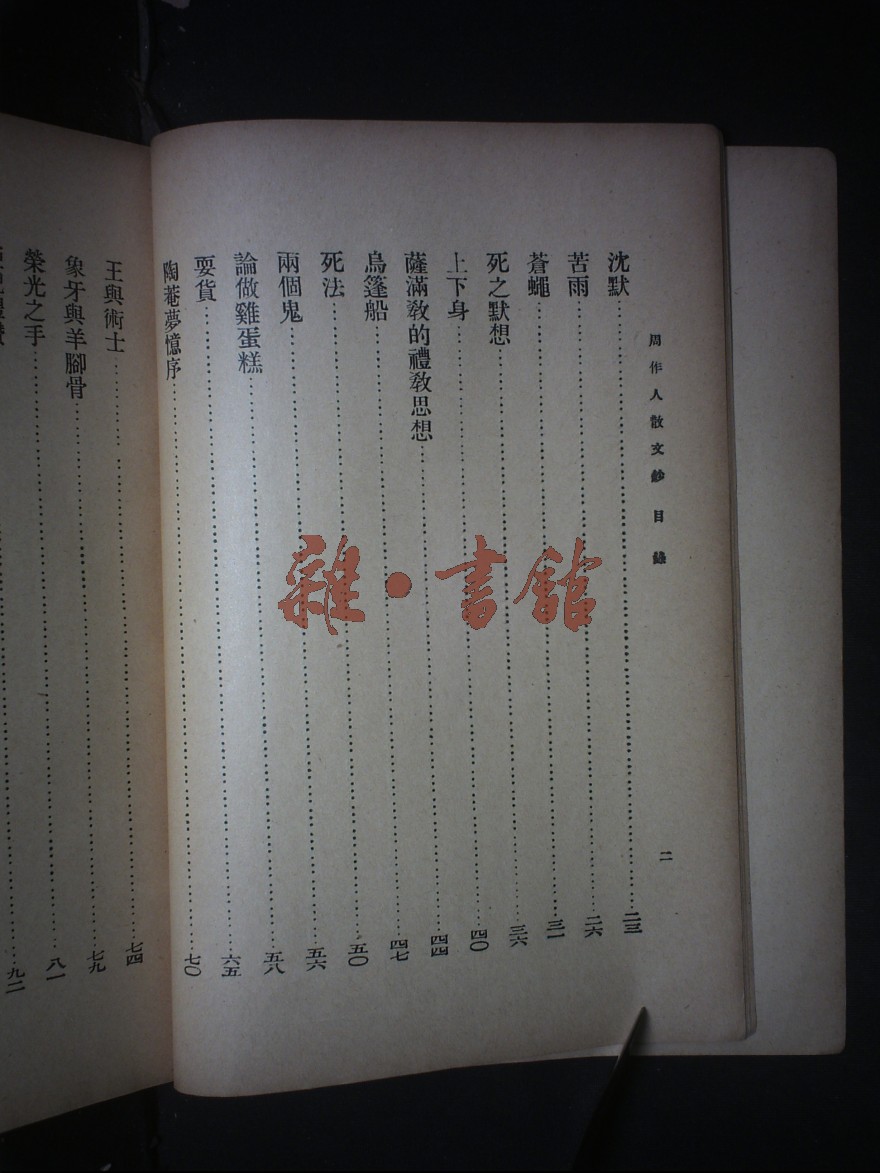 周作人散文鈔 目錄
二
沈默……二三
苦雨……二六
蒼蠅……三一
死之默想……三六
上下身……四〇
薩滿教的禮教思想……四四
烏篷船……四七
死法……五〇
兩個鬼……五六
論做雞蛋糕……五八
耍貨……六五
陶菴夢憶序……七〇
王與術士……七四
象牙與羊腳骨……七九
榮光之手……八一
九二
雜·書館